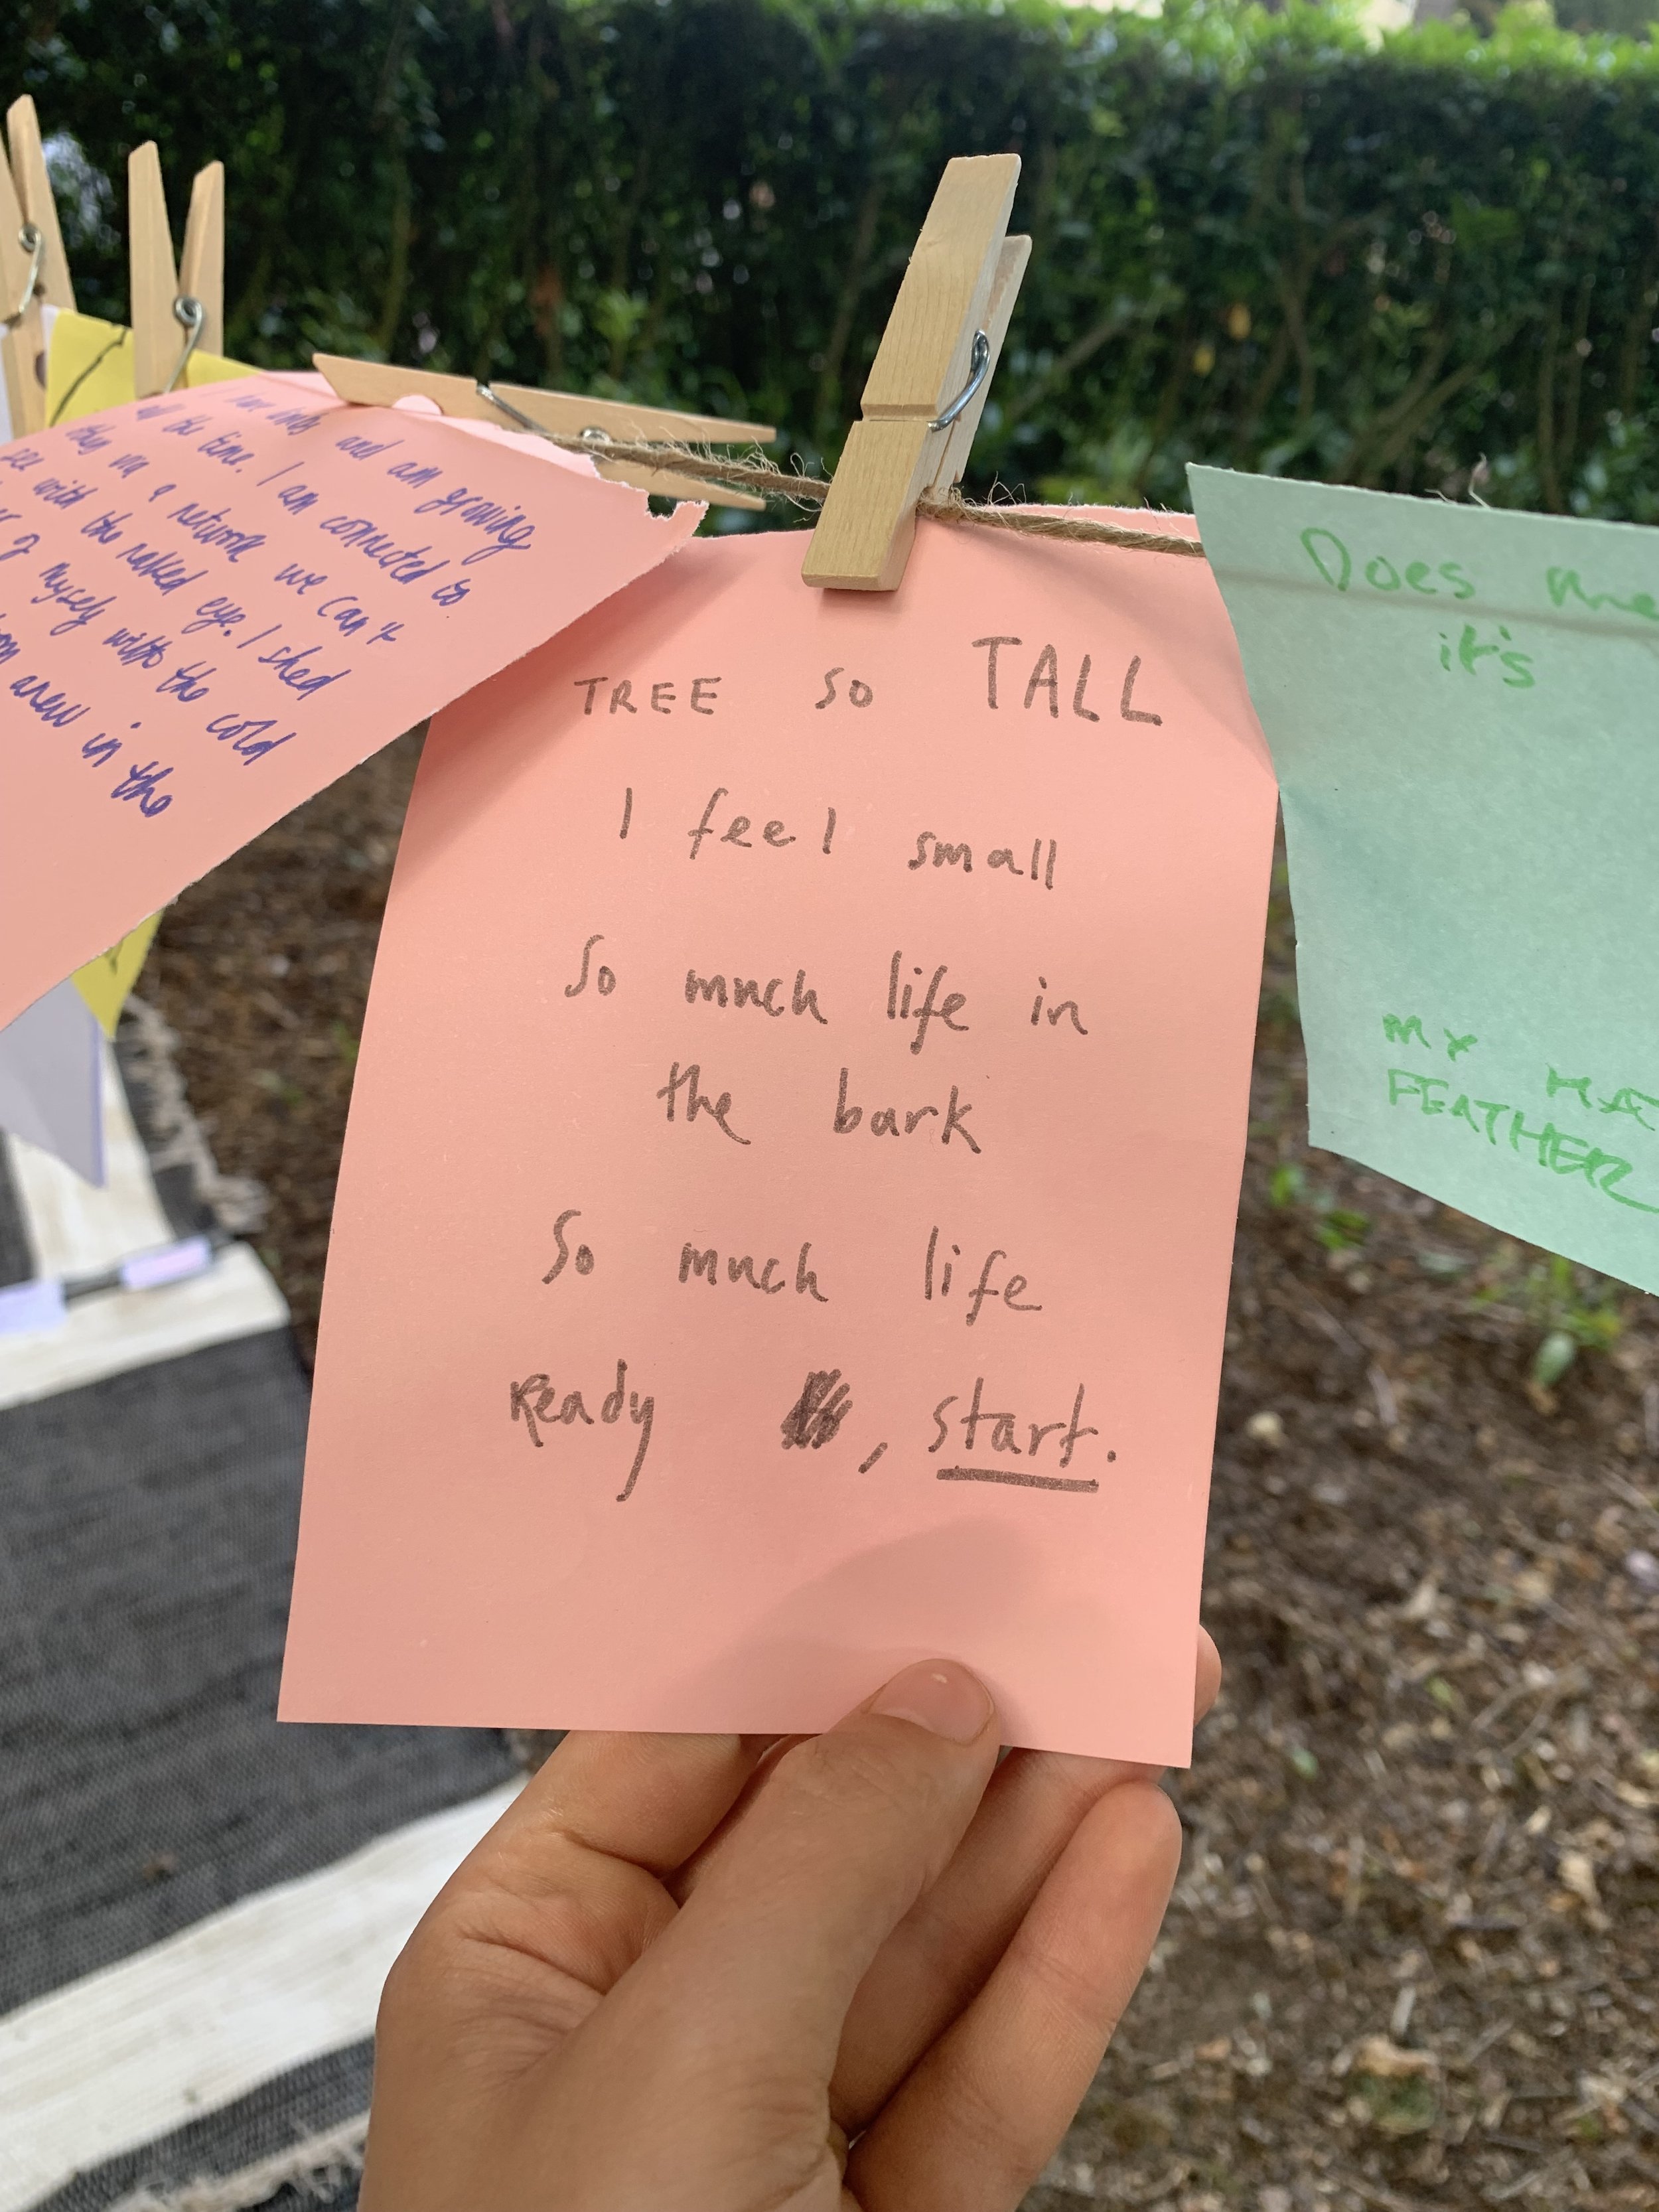 I have and am growing
all the time. I am connected to
via a network we can't
see with the naked eye. I shed
of myself with the cold
anew in the
TREE SO TALL
I feel small
So much life in
the bark
So much life
Ready , start.
Does
it's
MY
FEATHER